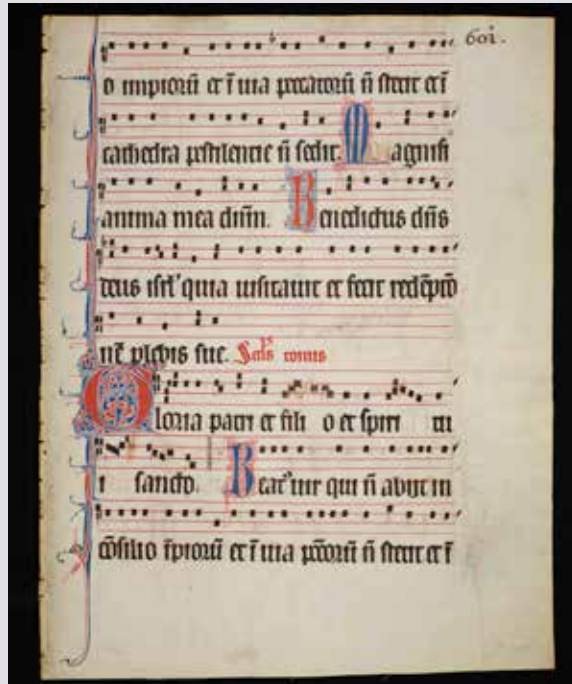 601.
o impiorū et ī uia peccatorū n̄ stetit et ī
cathedra pestilentie n̄ sedit. Magnifi
anima mea dn̄m. Benedictus dn̄s
deus isrl' quia uisitauit et fecit redēptō
nē plebis sue.
Gloria patri et fili o et spiri tu
i sancto. Beat' uir qui n̄ abiit in
cōsilio īpiorū et ī uia pctōrū n̄ stetit et ī